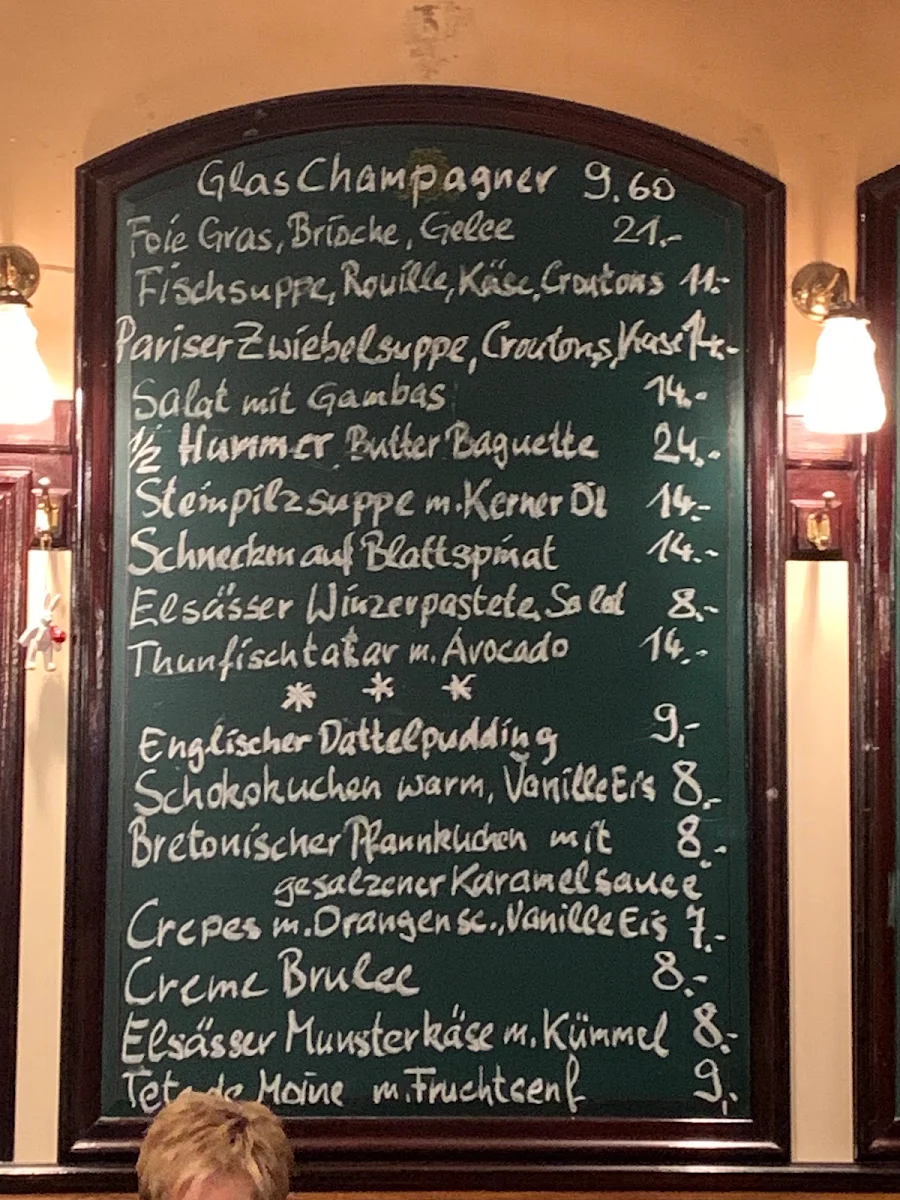 Glas Champagner 9.60
Foie Gras, Brioche, Gelee 21.-
Fischsuppe, Rouille, Käse, Croutons 11.-
Pariser Zwiebelsuppe, Croutons, Käse 14.-
Salat mit Gambas 14.-
1/2 Hummer Butter Baguette 24.-
Steinpilzsuppe m. Kerner Öl 14.-
Schnecken auf Blattspinat 14.-
Elsässer Winzerpastete, Salat 8.-
Thunfischtatar m. Avocado 14.-
* * *
Englischer Dattelpudding 9,-
Schokokuchen warm, Vanille Eis 8.-
Bretonischer Pfannkuchen mit 8.-
gesalzener Karamelsauce
Crepes m. Orangensc., Vanille Eis 7.-
Creme Brulee 8.-
Elsässer Munsterkäse m. Kümmel 8.-
Tete de Moine m. Fruchtsenf 9,-